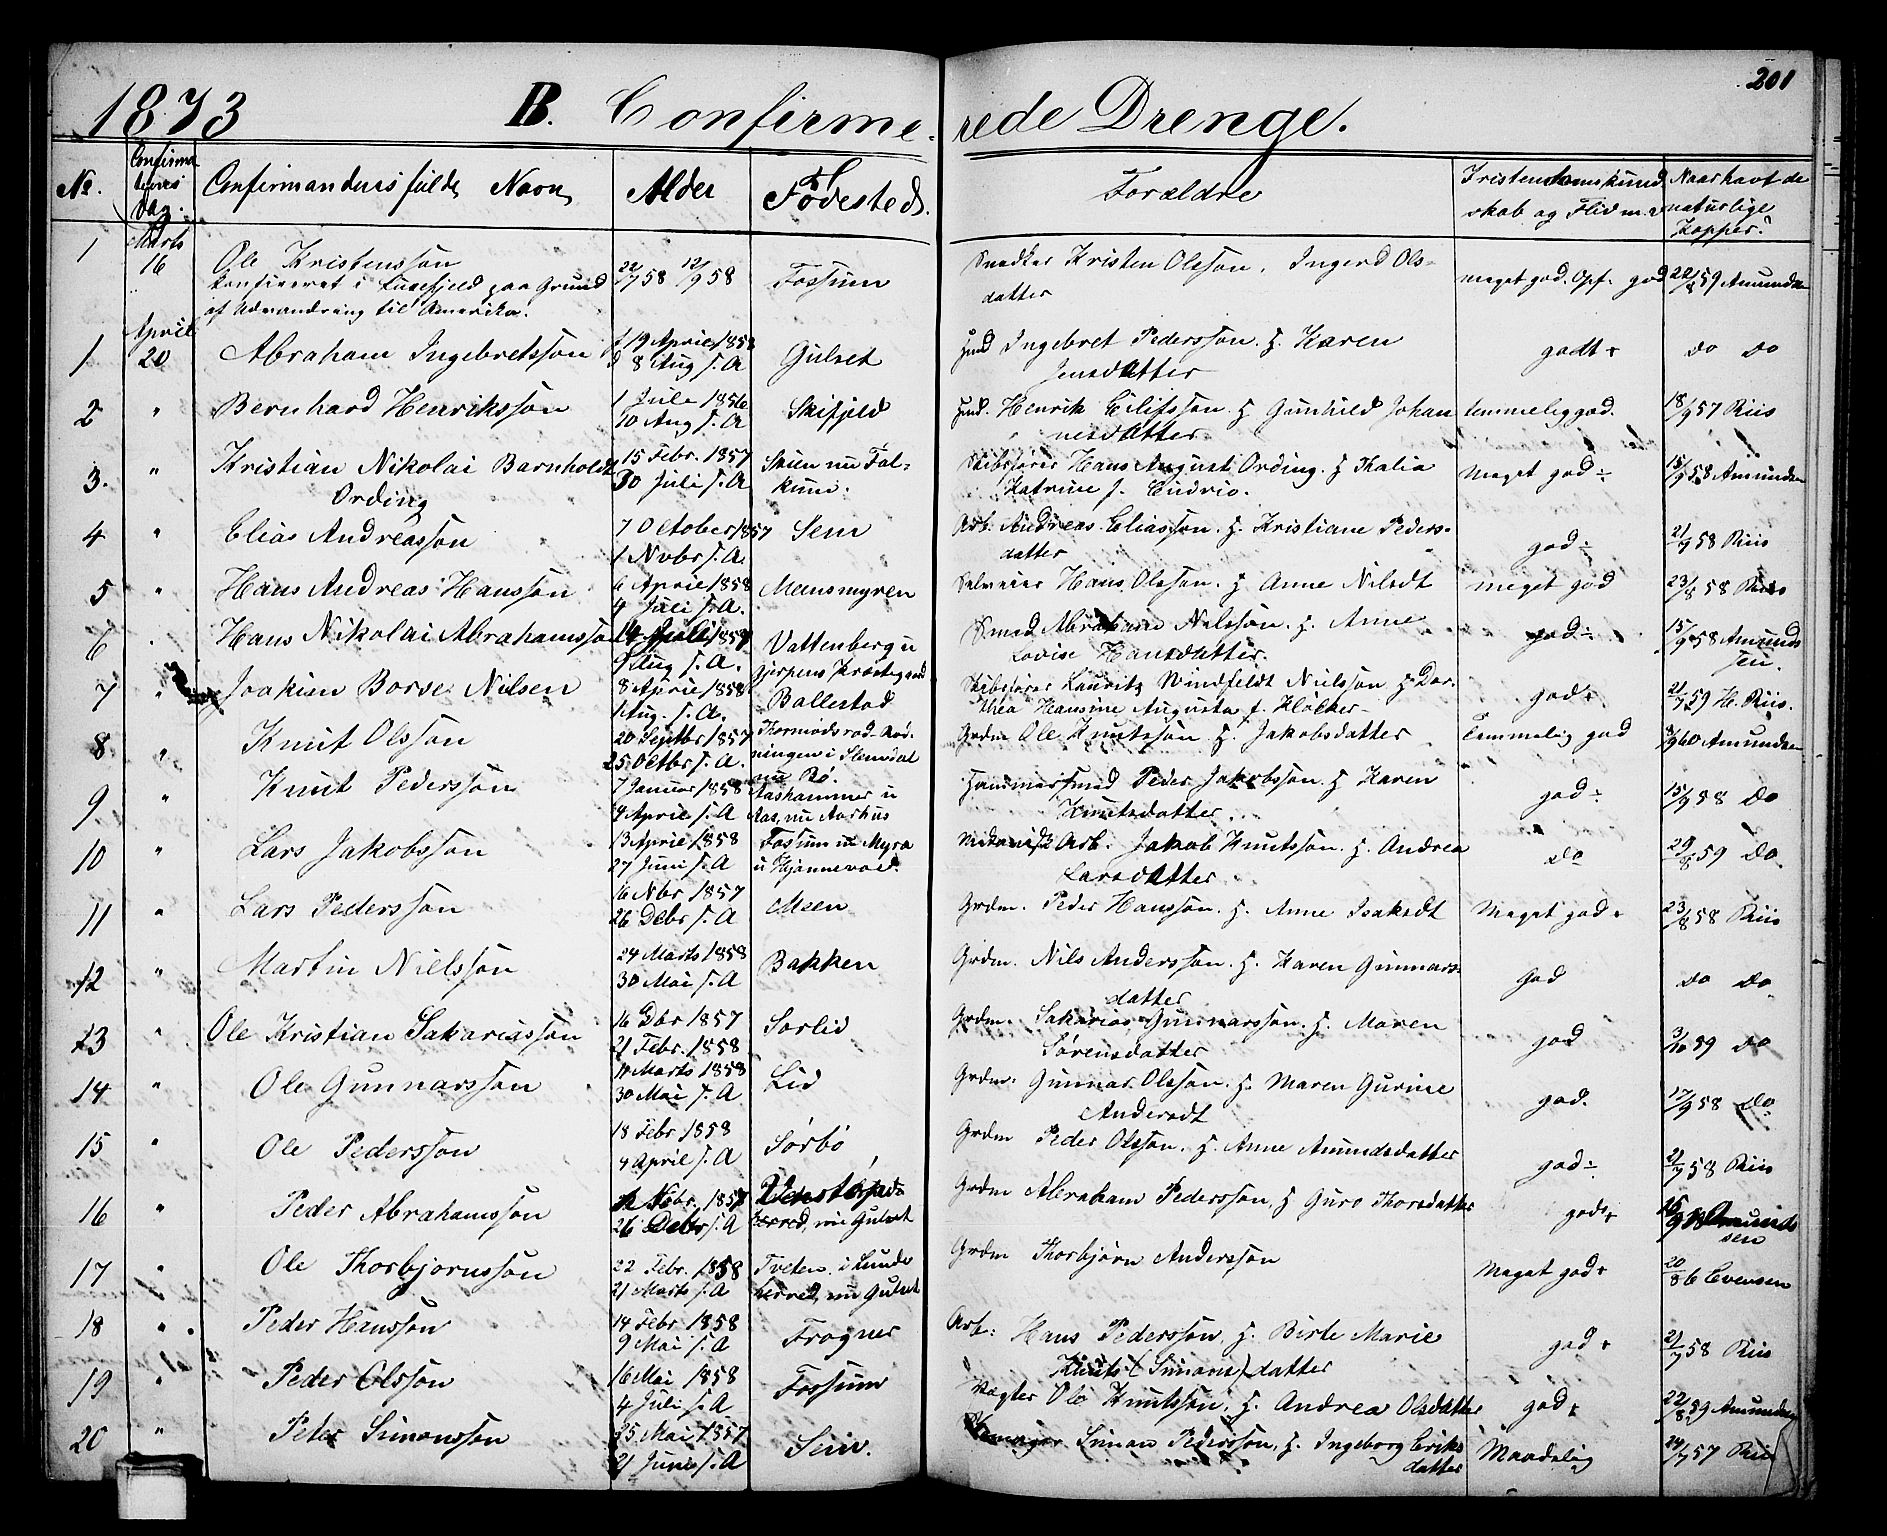 201
1873 B. Confirmerede Drenge.
No. Confirmationsdag. Confirmandens fulde Navn Alder Fødested. Forældre Kristendomskundskab og Flid m.v. Naar havt de naturlige Kopper?
1 Marts 16 Ole Kristensson 22/7 58 12/9 58 Fossum Snedker Kristen Olsson, Ingerd Olsdatter meget god. Opf. god 20/8 59 Amundsen
konfirmeret i Luxefjeld paa Grund
af Udvandring til Amerika.
1 April 20 Abraham Ingebretsson f 19 April 1858 d 8 Aug s. A Gulset Husmd Ingebret Pedersson. H. Karen Jensdatter godt+ do do
2 " Bernhard Henriksson 1 Juli 1856 10 Aug s. A Skifjeld Husmd. Henrik Eilifsson H Gunhild Johannesdatter temmelig god. 18/9 57 Riis
3. " Kristian Nikolai Barnholdt Ording 15 Febr. 1857 30 Juli s. A Skien nu Falkum. Skibsfører Hans August Ording. H Thalia Katrine f. Meget god÷ 15/9 58 Amundsen
4 " Elias Andreasson 7 October 1857 1 Nvbr s. A. Sem Arb. Andreas Eliasson. H. Kristiane Pedersdatter god÷ 21/7 58 Riis
5 " Hans Andreas Hansson 6 April 1858 4 Juli s. A. Mensmyren Salmager Hans Olsson. H Anne Nilsdt meget god 23/8 58 Riis
6 . Hans Nikolai Abrahamsson 14 1857 9 Aug s. A. Vattenberg u Gjerpens Præstegaard Smed Abraham Nilsson. H. Anne Lovise Hansdatter. god÷ 15/9 58 Amundssen.
7 " Joakim Borse Nilsen 8 April 1858 1 Aug. s. A. Ballestad Skibsfører Lauritz Windfeldt Nielsson H Dorthea Hansine Augusta f. Klocker god+ 21/7 59 H. Riis.
8 " Knut Olsson 20 Septbr 1857 25 Octbr s. A. Thormodsrød i Slemdal nu Bø. Grdm Ole Knutsson H. Jakobsdatter Temmelig god 3/9 60 Amundsen
9 " Knut Pedersson 7 Januar 1858 4 April s. A Aashammer u Aas, nu Aarhus Hammersmed Peder Jakobsson. H Karen Knutsdatter. god÷ 15/9 58 do
10 " Lars Jakobsson 13 April 1858 27 Juni s. A Fossum nu Myra u Kjønnevald Arb. Jakob Knutsson. H. Andrea Larsdatter do 29/8 59 do
11 " Lars Pedersson 16 Nbr 1857 26 Debr s. A Meen Grdm. Peder Hansson. H. Anne Isaksdt Meget god+ 23/8 58 Riis
12 " Martin Nielsson 24 Marts 1858 30 Mai s. A Bakken Grdm. Nils Andersson. H. Karen Gunnarsdatter god do do
13 " Ole Kristian Sakariasson 16 Dbr 1857 21 Febr. 1858 Sørlid Grdm. Sakarias Gunnarsson. H. Maren Sørensdatter god 3/10 59 do
14 " Ole Gunnarsson 11 Marts 1858 30 Mai s. A Lid Grdm. Gunnar Olsson. H. Maren Gurine Andersdt god. 17/9 58 do
15 " Ole Pedersson 18 Febr 1858 4 April s. A Sørbø Grdm Peder Olsson. H. Anne Amundsdatter god÷ 21/7 58 Riis
16 " Peder Abrahamsson Nbr. 1857 26 Debr s. A herred, nu Gulset Grdm Abraham Pedersson, H Guro Thorsdatter god+ 15/9 Amundssen
17 " Ole Thorbjørnsson 22 Febr. 1858 21 Marts s. A Tveten i Lunde herred, nu Gulset Grdm Thorbjørn Andersson Meget god+ 20/8 6 Evensen
18 " Peder Hansson 14 Febr 1858 9 Mai s. A Frogner Arb. Hans Pedersson, H. Birte Marie Knuts (Simons) datter god+ 21/7 58 Riis
19 " Peder Olsson 16 Mai 1858 4 Juli s. A Fossum Vagter Ole Knutsson, H. Andrea Olsdatter god+ 22/8 59 Amundsen
20 " Peter Simonsson 25 Mai 1857 21 Juni s. A Sem. Simon Pedersson, H. Ingeborg Eriksdatter Maadelig 24/7 57 Riis